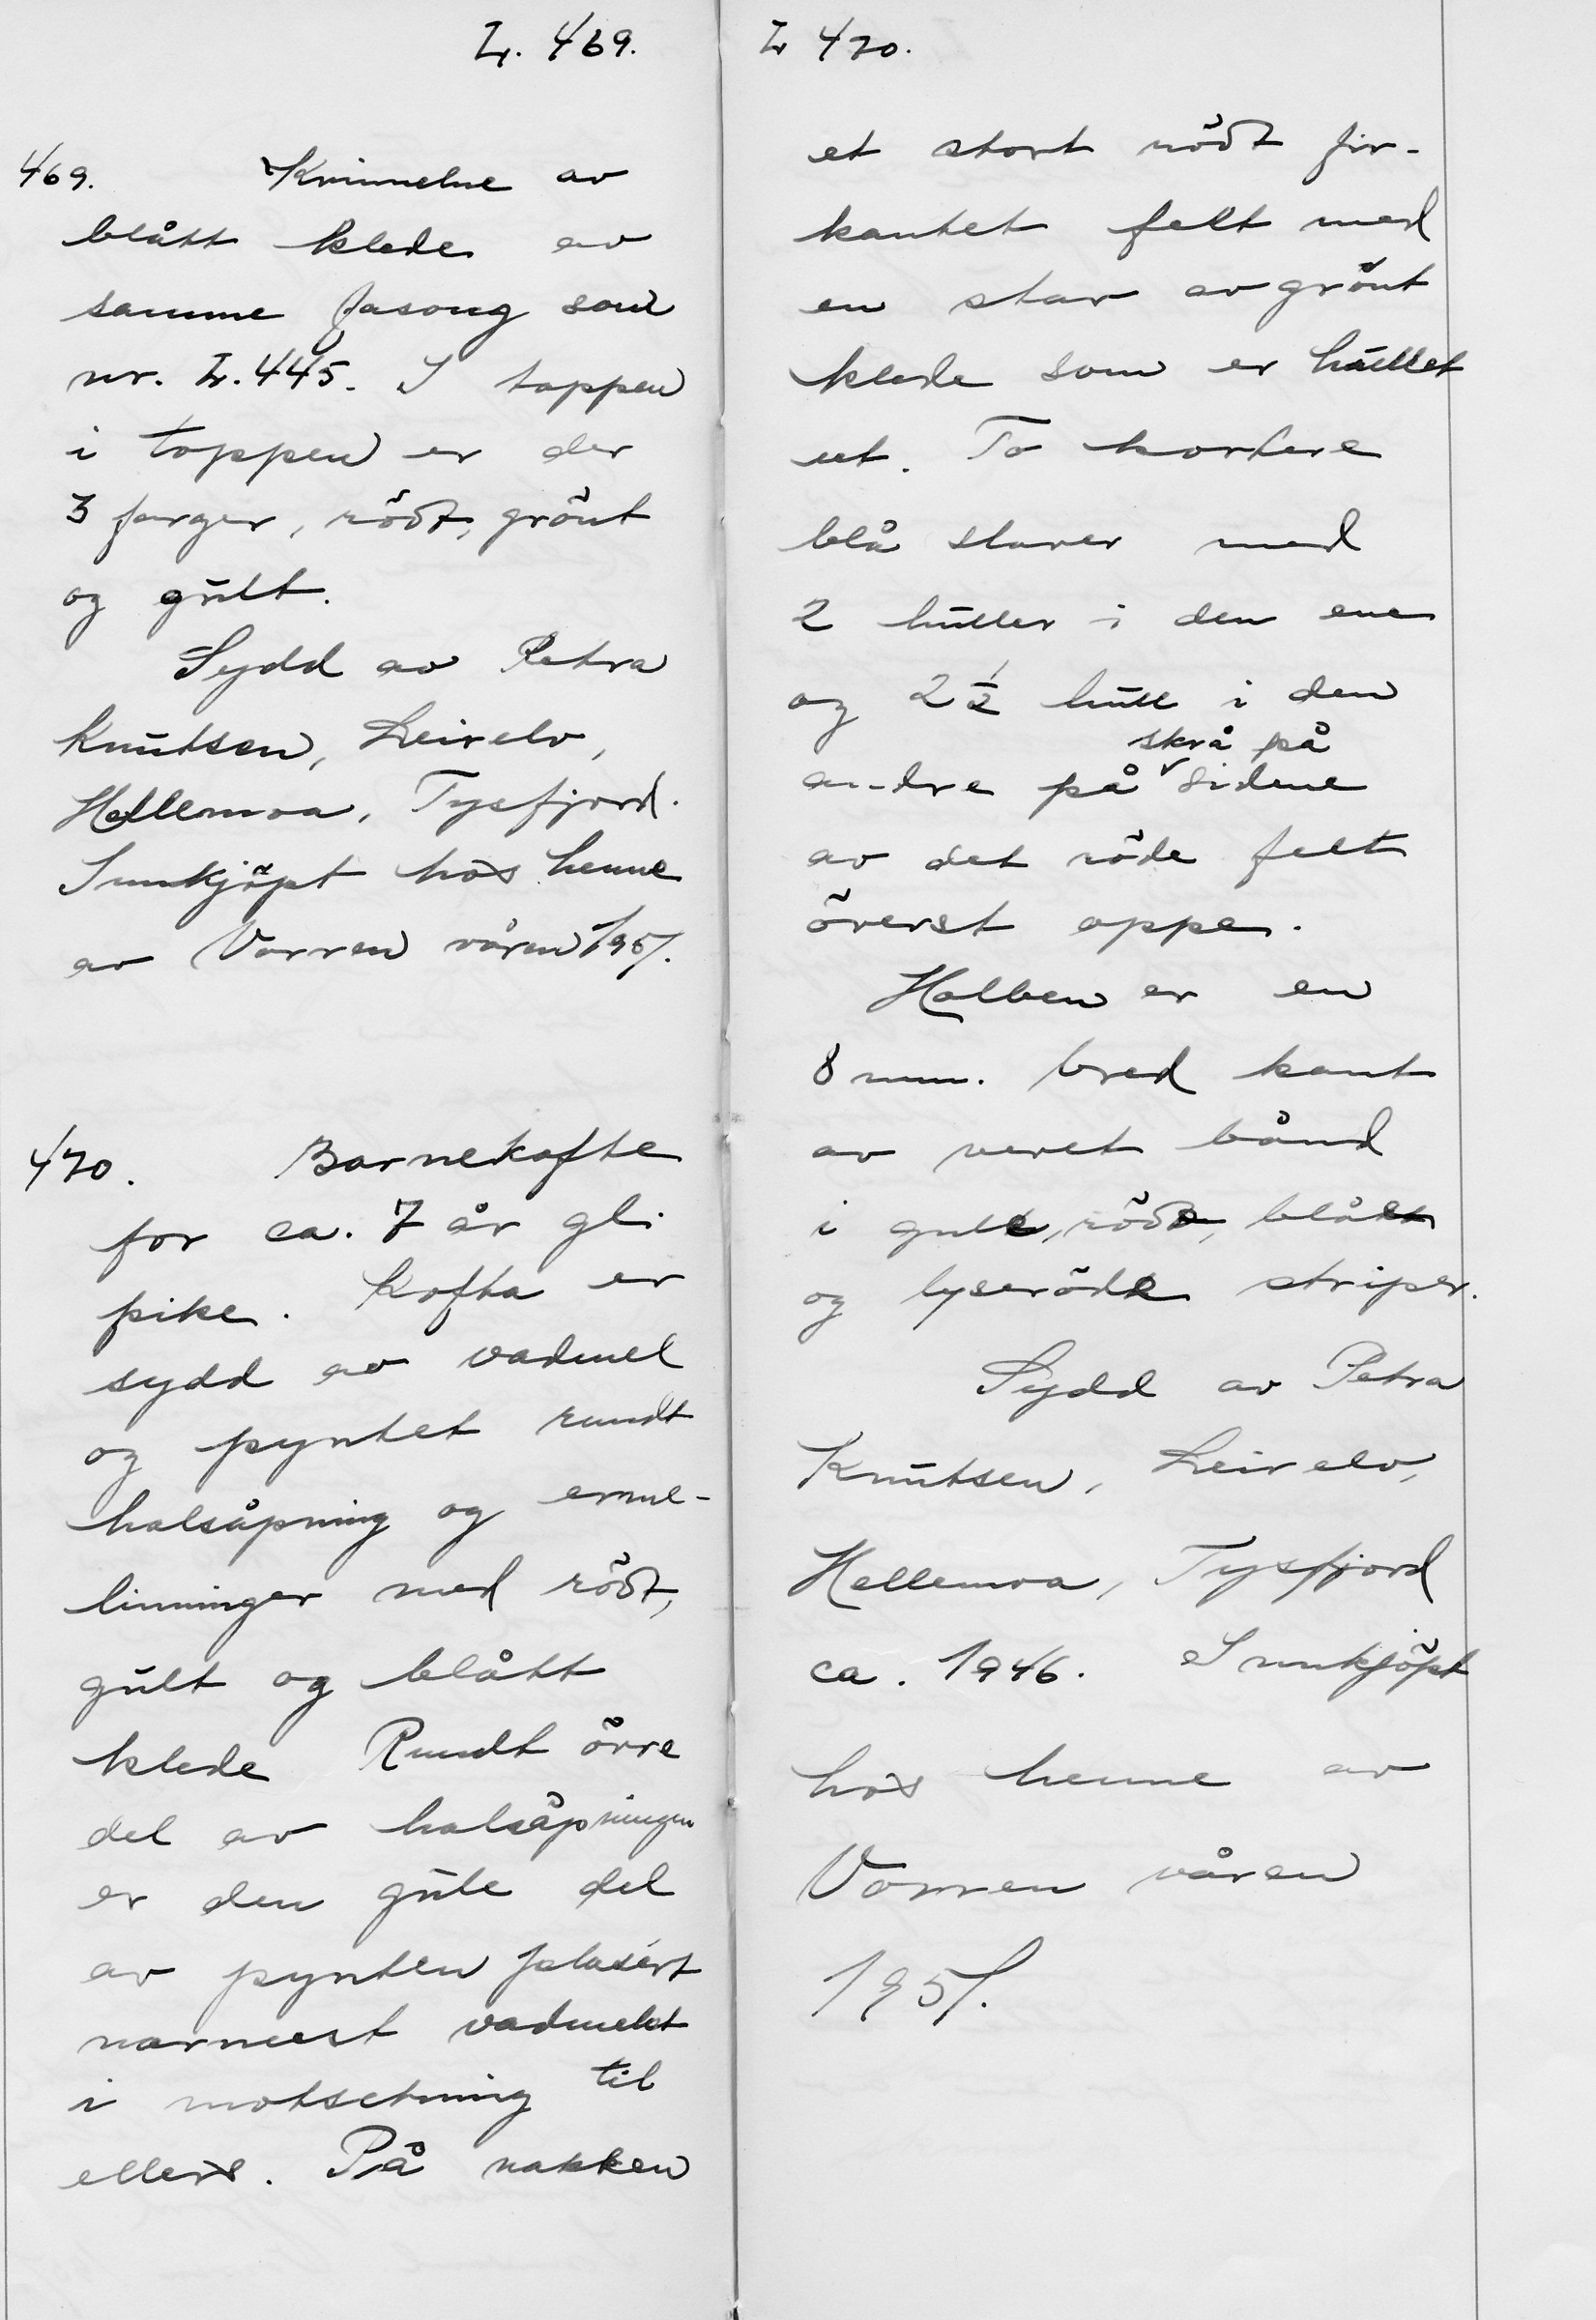 L. 469.
469. Kvinnelue av
blått klede av
samme fasong som
nr. L. 445. I toppen
i toppen er der
3 farger, rödt, grönt
og gult.
Sydd av Petra
Knutsen, Leirelv,
Hellemoa, Tysfjord.
Innkjöpt hos henne
av Vorren våren 1951.
470. Barnekofte
for ca. 7 år gl.
pike. Kofta er
sydd av vadmel
og pyntet rundt
halsåpning og erme-
linninger med rödt,
gult og blått
klede Rundt övre
del av halsåpningen
er den gule del
av pynten plasert
nærmest vadmelet
i motsetning til
ellers. På nakken
L 470.
et stort rödt fir-
kantet felt med
en stav av grönt
klede som er hullet
ut. To kortere
blå staver med
2 huller i den ene
og 2 1/2 hull i den
skrå på
andre på sidene
av det röde felt
överst oppe.
Halben er en
8 mm. bred kant
av vevet bånd
i gule, röde, blå
og lyseröde striper.
Sydd av Petra
Knutsen, Leirelv,
Hellemoa, Tysfjord
ca. 1946. Innkjöpt
hos henne av
Vorren våren
1951.